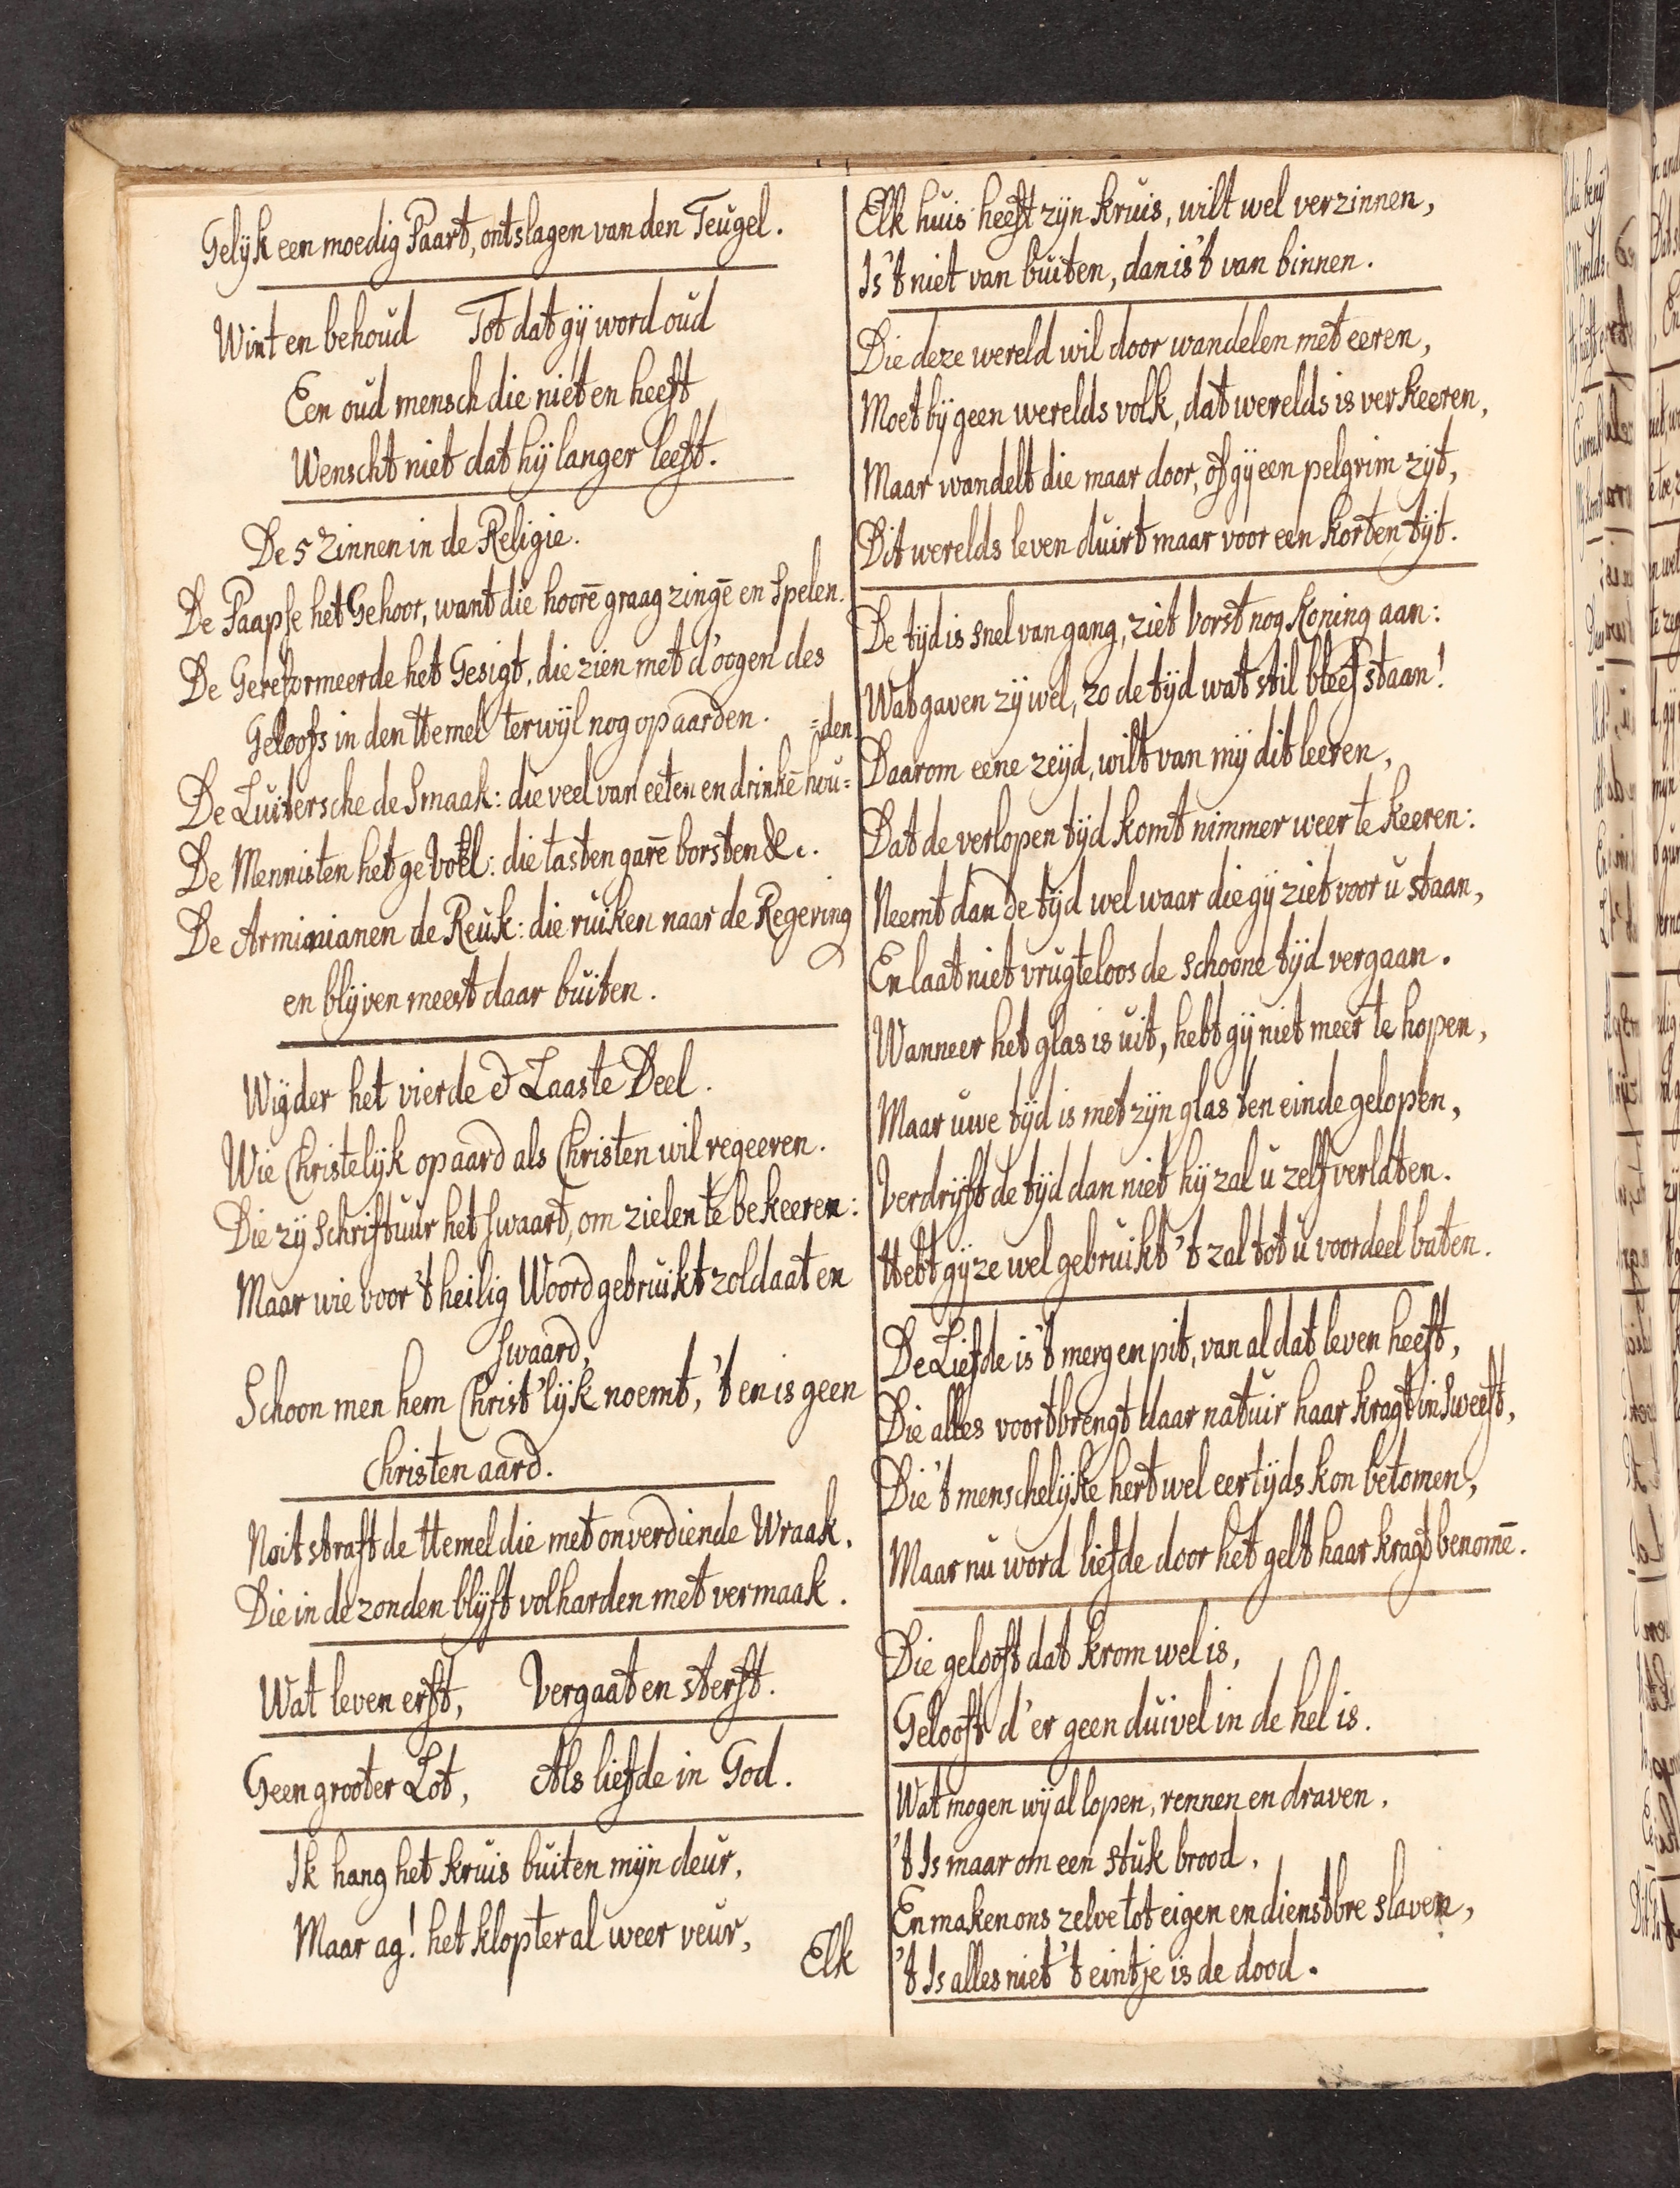 Gelyk een moedig Paart, ontslagen van den Teugel.
Wint en behoud Tot dat gij word oud
Een oud mensch die niet en heeft
Wenscht niet dat hij langer leeft.
De 5 Zinnen in de Religie.
De Paapse het Gehoor, want die hoorē graag zingē en Spelen.
De Gereformeerde het Gesigt, die zien met d'oogen des
Geloofs in den Hemel terwyl nog op aarden. =den
De Luitersche de Smaak: die veel van eeten en drinkē hou=
De Mennisten het gevoel: die tasten garē borsten &c.
De Arminianen de Reuk: die ruiken naar de Regering
en blyven meest daar buiten.
Wijder het vierde & Laaste Deel.
Wie Christelijk op aard als Christen wil regeeren.
Die zij Schriftuur het Swaart, om zielen te bekeeren:
Maar wie voor 't heilig Woord gebruikt zoldaat en
Swaard,
Schoon men hem Christ'lijk noemt, 't en is geen
Christen aard.
Noit straft de Hemel die met onverdiende Wraak.
Die in de zonden blijft volharden met vermaak.
Wat leven erft, Vergaat en sterft.
Geen grooter Lot, Als liefde in God.
Ik hang het kruis buiten mijn deur,
Maar ag! het klopter al weer veur,
Elk
Elk huis heeft zijn kruis, wilt wel verzinnen,
Is 't niet van buiten, dan is 't van binnen.
Die deze wereld wil door wandelen met eeren,
Moet bij geen werelds volk, dat werelds is verkeeren,
Maar wandelt die maar door, of gij een pelgrim zijt,
Dit werelds leven duirt maar voor een korten tijt.
De tijd is snel van gang, ziet Vorst nog Koning aan:
Wat gaven zij wel, zo de tijd wat stil bleef staan!
Daarom eene zeijd, wilt van mij dit leeren,
Dat de verlopen tijd komt nimmer weer te keeren:
Neemt dan de tijd wel waar die gij ziet voor u staan,
En laat niet vrugteloos de schoone tijd vergaan.
Wanneer het glas is uit, hebt gij niet meer te hopen,
Maar uwe tijd is met zijn glas ten einde gelopen,
Verdrijft de tijd dan niet hij zal u zelf verlaten.
Hebt gij ze wel gebruikt 't zal tot u voordeel baten.
De Liefde is 't merg en pit, van al dat leven heeft,
Die alles voortbrengt daar natuir haar kragt in Sweeft,
Die 't menschelijke hert wel eertijds kon betomen,
Maar nu word liefde door het gelt haar kragt benomē.
Die gelooft dat krom wel is,
Gelooft d'er geen duivel in de hel is.
Wat mogen wij al lopen, rennen en draven,
't Is maar om een stuk brood,
En maken ons zelve tot eigen en dienstbre slaven,
't Is alles niet 't eintje is de dood.